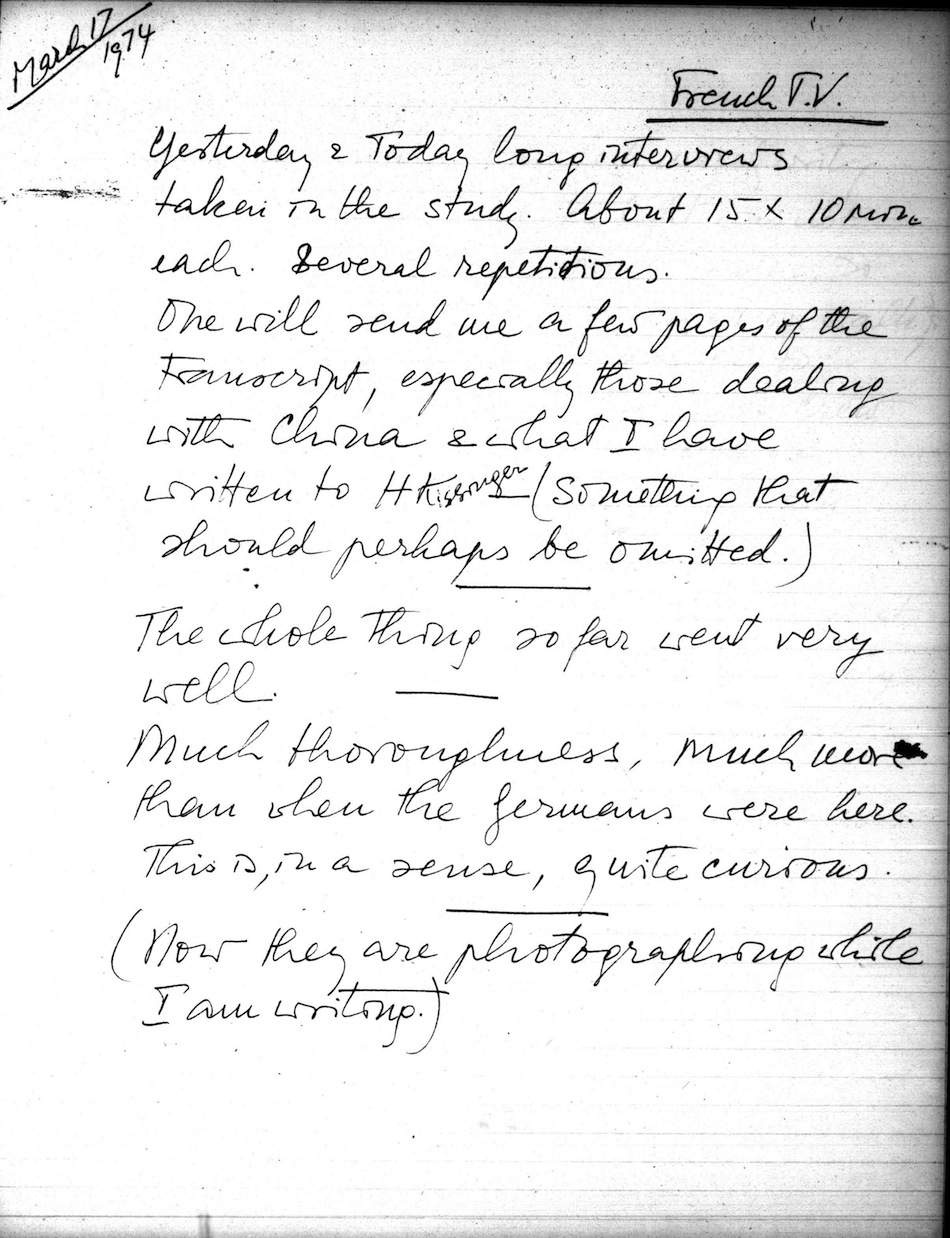 March 17
1974
French T.V.
Yesterday & Today long interviews
taken in the study. About 15 x 10 min.
each. Several repetitions.
One will send me a few pages of the
Transcript, especially those dealing
with China & what I have
written to H Kissinger (Something that
should perhaps be omitted.)
The whole thing so far went very
well.
Much thoroughness, much more
than when the Germans were here.
This is, in a sense, quite curious.
(Now they are photographing while
I am writing.)